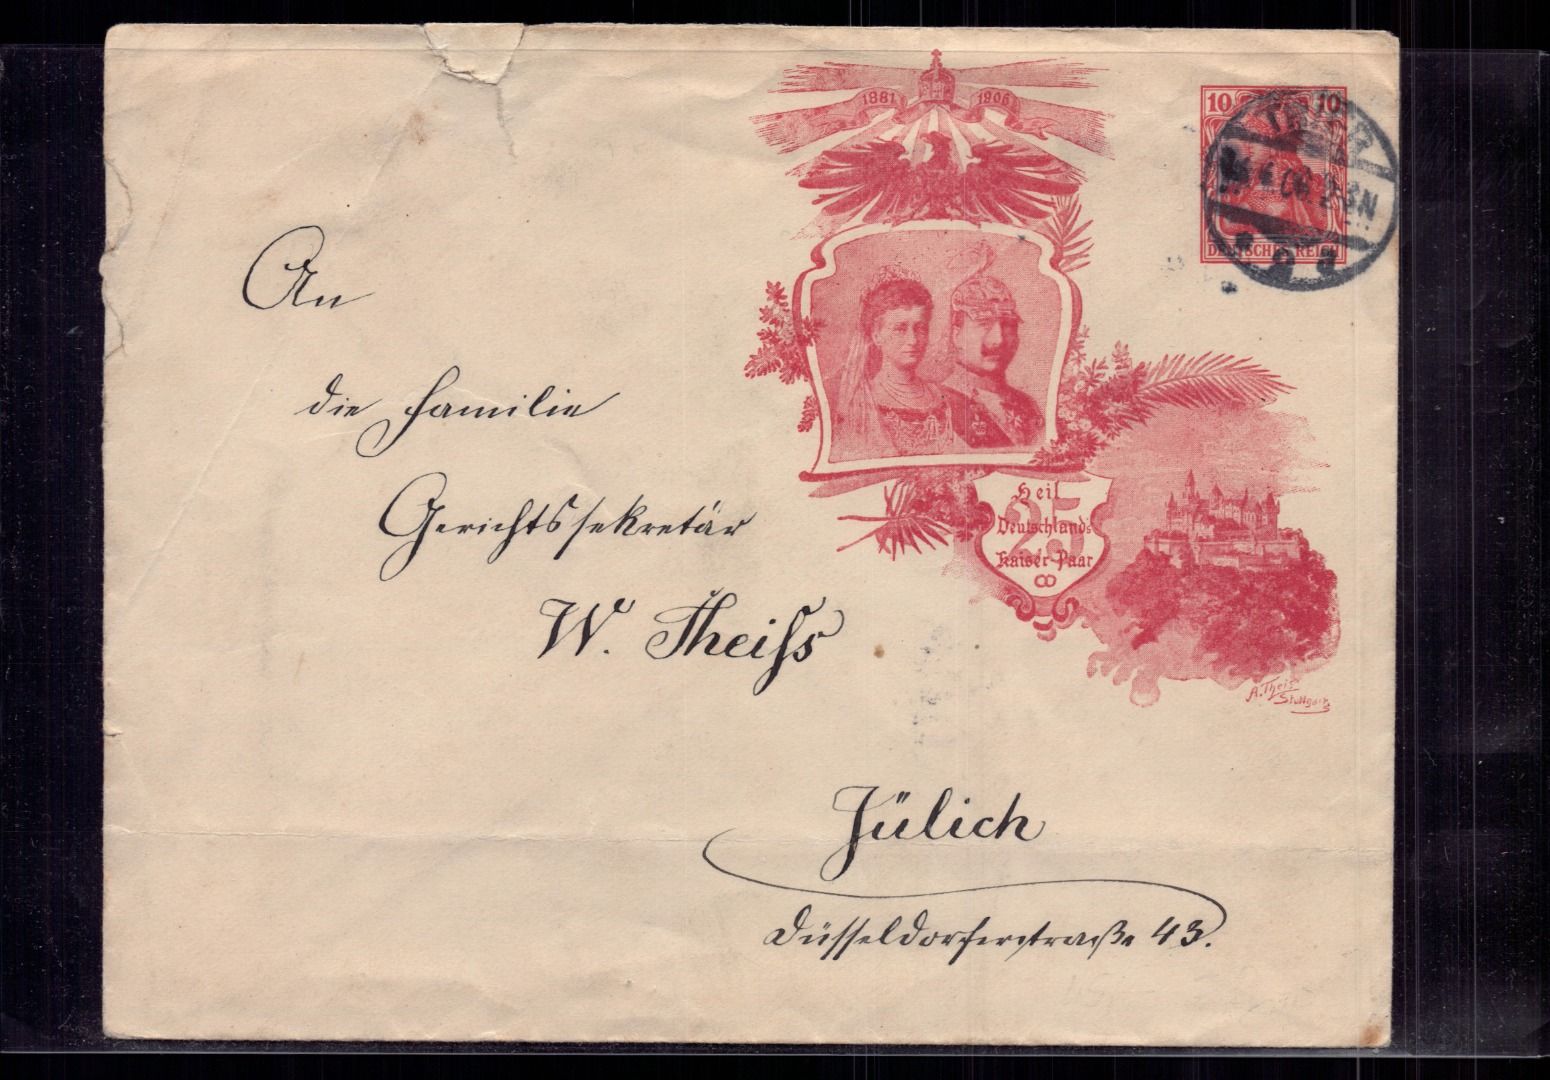 1881 1906
10 10
DEUTSCHES REICH
TRIER
An
die Familie
Gerichtssekretär
W. Theiſs
Jülich
Düsseldorferstraße 43.
25
Heil
Deutschlands
Kaiser-Paar
A. Theis
Stuttgart